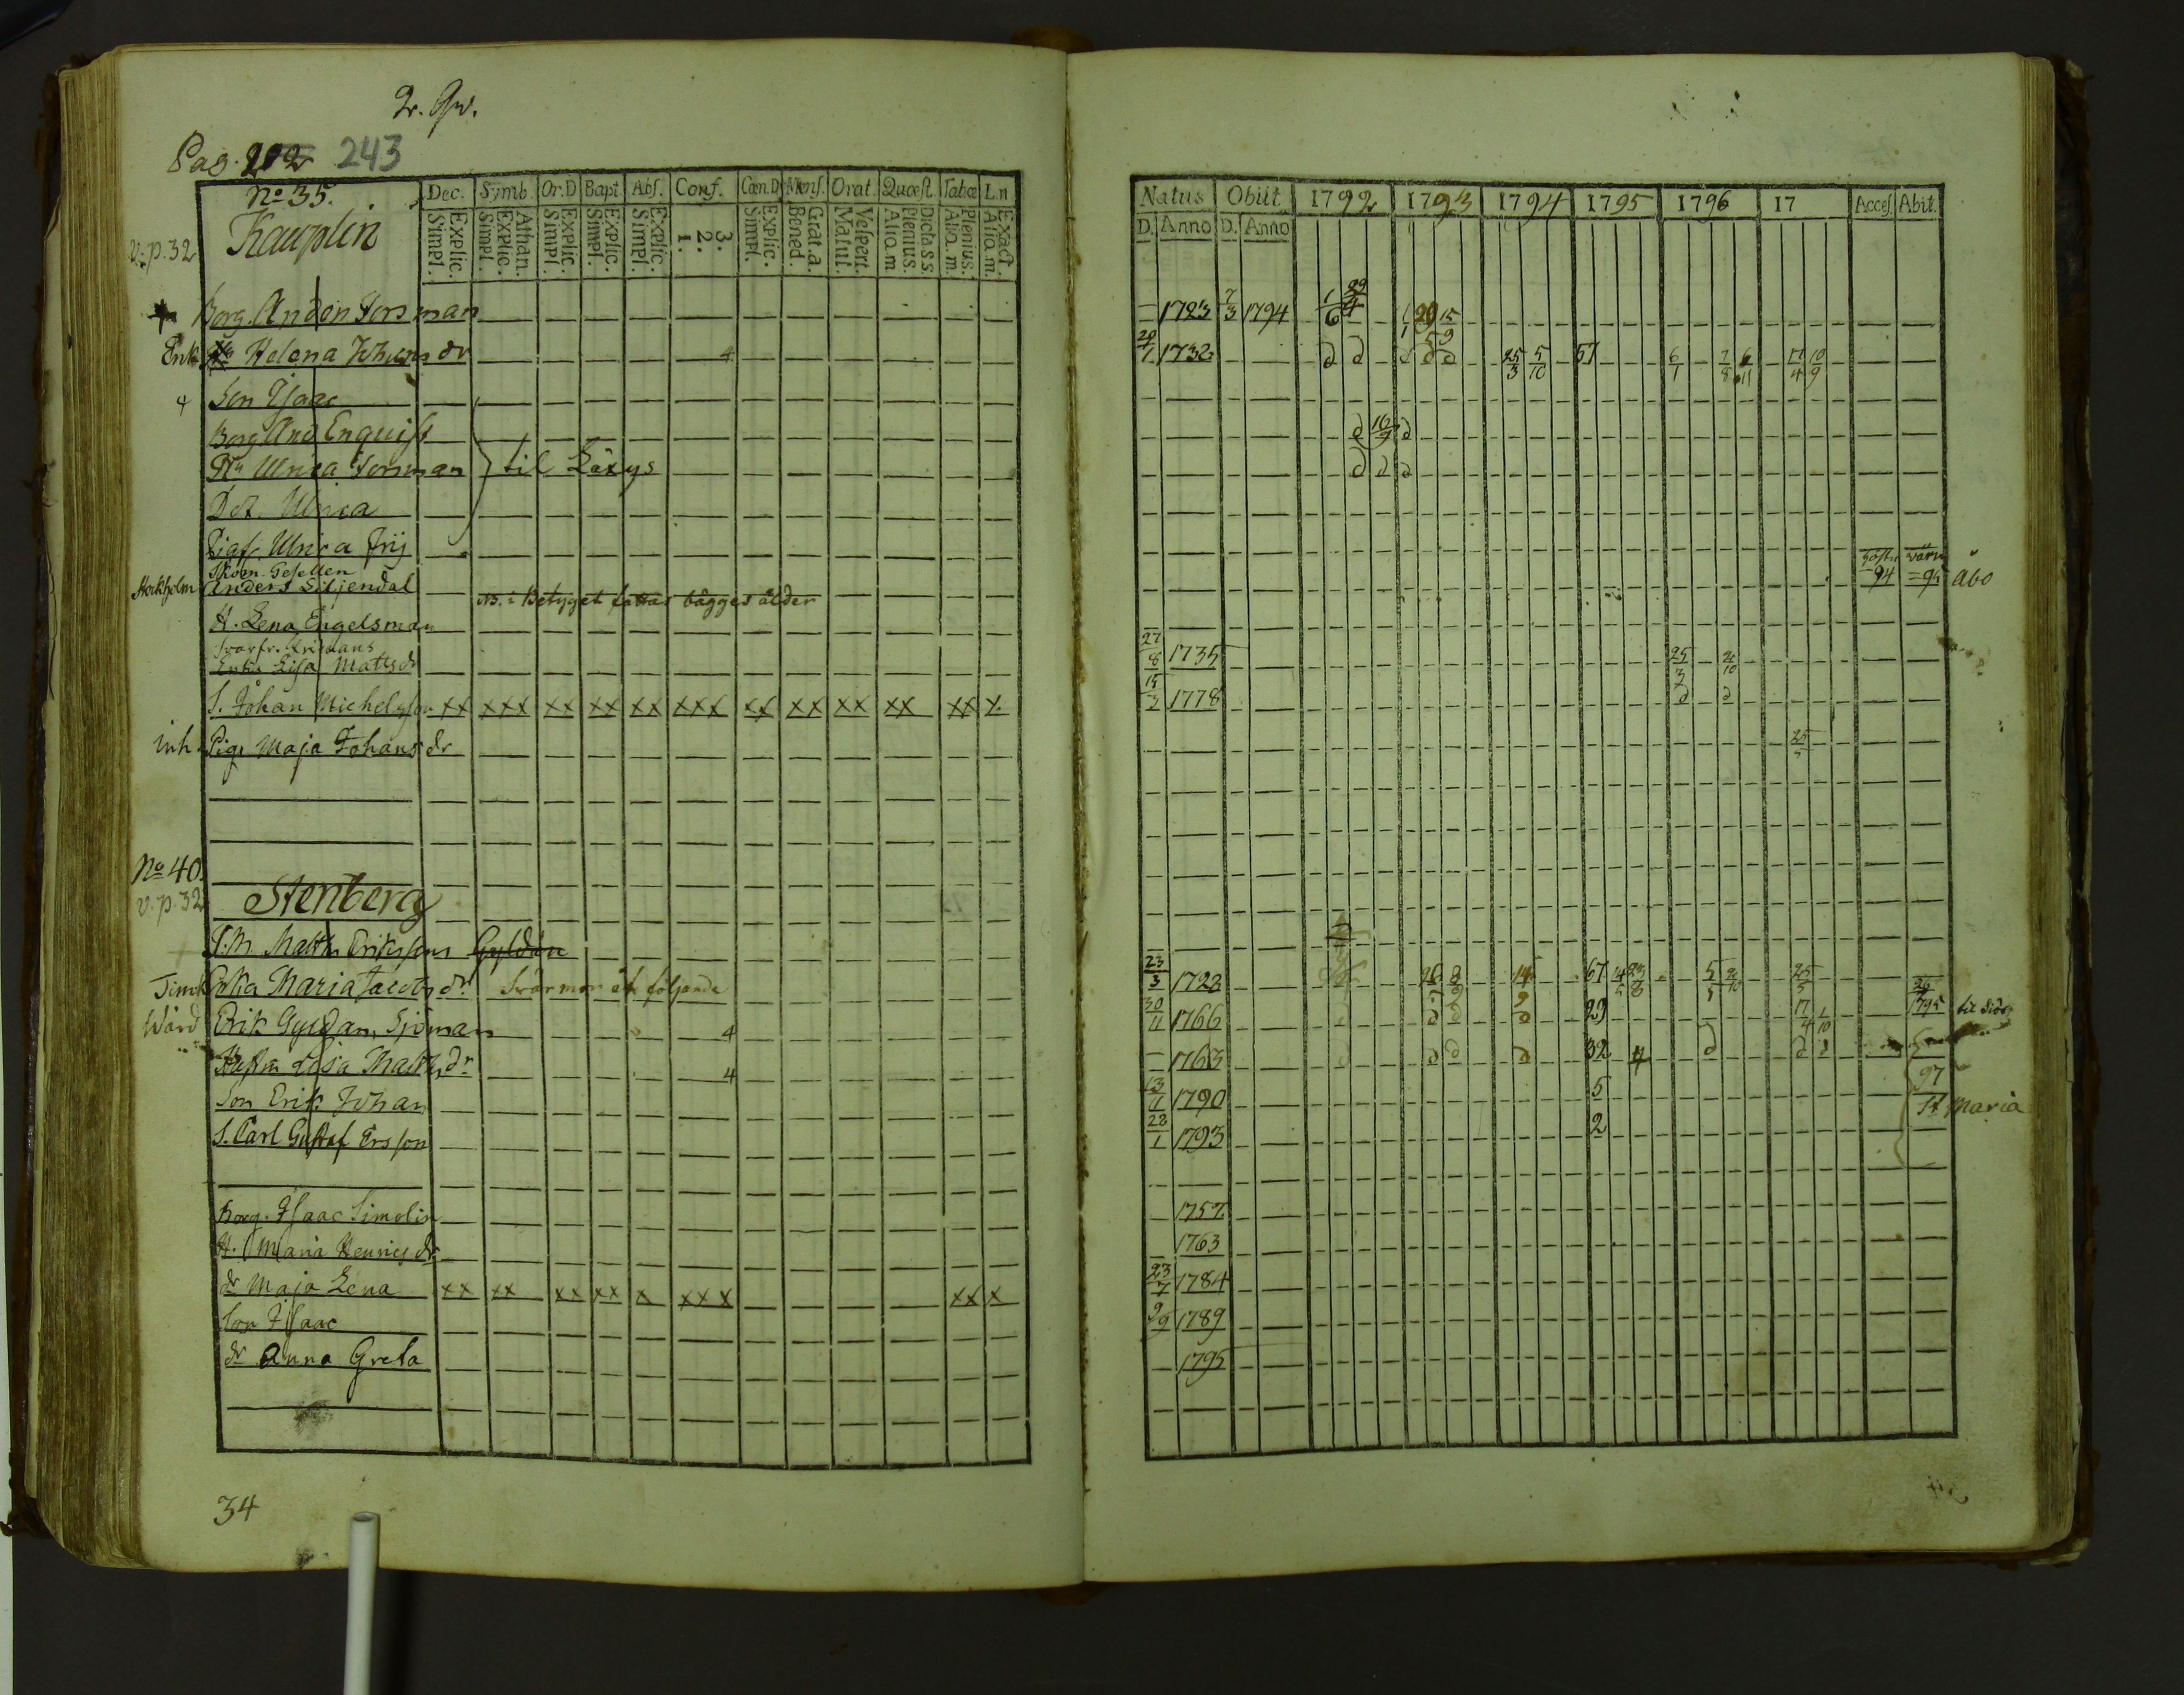 2. Qv.
Pag. 202 243
No 35. Dec. Symb. Or.D Bapt. Abſ. Conf. Cœn.D Menſ. Orat. Quæſt. Tabœ L.n
Explic. Simpl. Athan. Explic. Simpl. Explic. Simpl. Explic. Simpl. Explic. Simpl. 3. 2. 1. Explic. Simpl. Grat.a. Bened. Veſpert. Matut. Dicta s.s. Plenius. Aliq.m Plenius. Aliq.m. Exact. Aliq.m.
v.p. 32 Kauplin
Borg. Anders Forsman
Enk. Helena Johansdr 4
Son Iſaac
Borg And Enquiſt
Hu Ulrica Forsman til Läxys
Dot. Ulrica
Pigſ. Ulrica Frij
Skom. Geſellen
Stockholm Anders Liljendal
NB. i Betyget fattas bägges ålder
H. Lena Engelsman
Svarfv. Kristians
Enka Lisa Matsdr
S. Johan Michelsson xx xxx xx xx xx xxx xx xx xx xx xx x
inh. Pig. Maja Johansdr
No 40.
v.p. 32 Stenberg
T.M Matths Ericksson Gyldén
Timk Enka Maria Jacobsdr Svärmor åt följande
Wård Erik Gyldan, Sjöman 4
Hustru Lisa Mattsdr 4
Son Erik Johan
S. Carl Gustaf Ersson
Borg. Iſaac Simolin
H. Maria Henricsdr
dr Maja Lena xx xx xx xx x xxx xx x
Son Iſaac
dr Anna Greta
34
Natus Obiit 1792 1793 1794 1795 1796 17 Acceſ Abit.
D. Anno D. Anno
1723 7/3 1794 1/6 29/4 1/1 29/5 15/9
20/1 1732 25/3 5/10 57 6/1 7/8 6/11 17/4 10/9
16/9
94 94 Åbo
27/8 1735 25/3 2/10
15/3 1778
25/5
23/3 1722 26 8 14 67 14/5 23/8 5/5 2/10 25/5
30/11 1766 29 17/4 1/10 1795 til Siös
1763 32 4
13/11 1790 5 97
28/1 1793 2 St Maria
1757
1763
23/7 1784
9/9 1789
1795